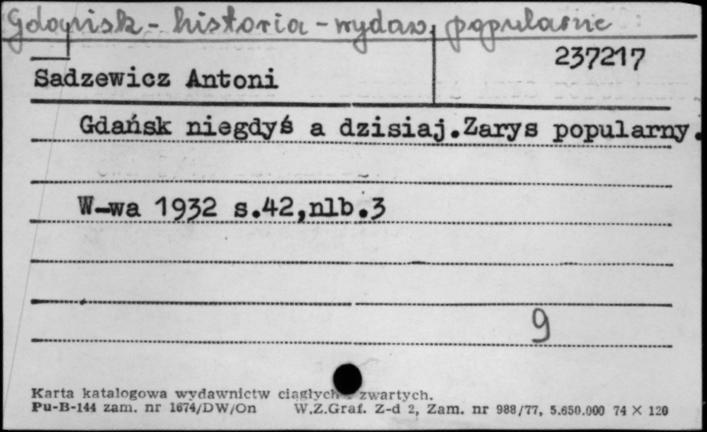 Gdańsk - historia - wydaw. popularne
237217
Sadzewicz Antoni
Gdańsk niegdyś a dzisiaj.Zarys popularny.
W-wa 1932 s.42,nlb.3
9
Karta katalogowa wydawnictw ciągłych zwartych.
Pu-B-144 zam. nr 1674/DW/On W.Z.Graf. Z-d 2, Zam. nr 988/77, 5.650.000 74 × 120